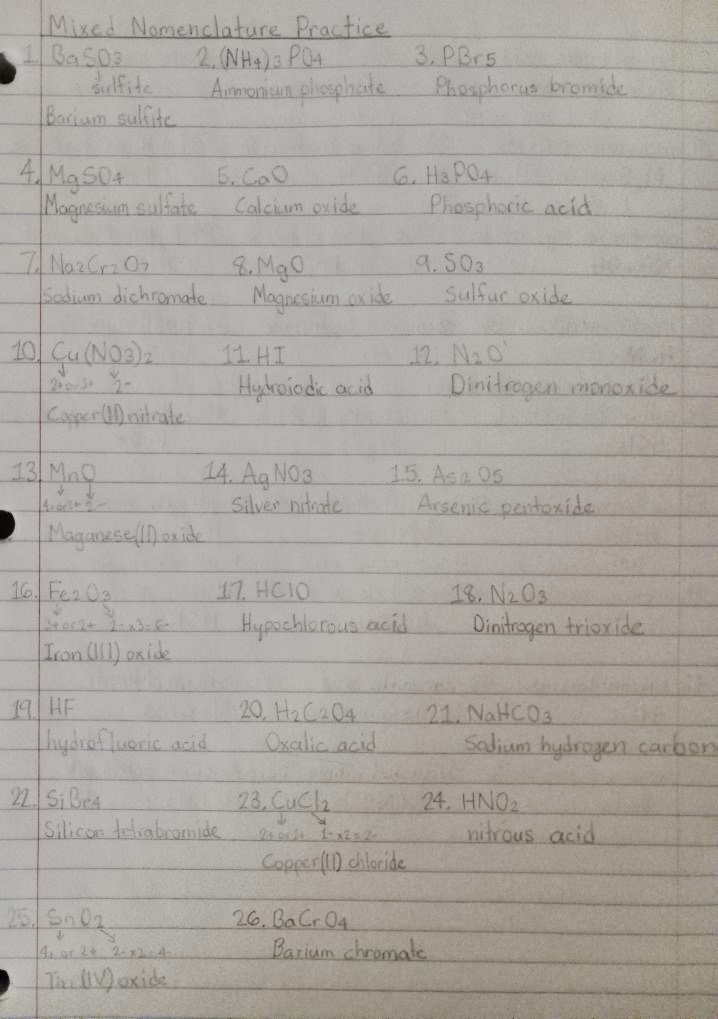 Mixed Nomenclature Practice
1. BaSO3 2. (NH4)3PO4 3. PBr5
sulfite Ammonium phosphate Phosphorus bromide
Barium sulfite
4. MgSO4 5. CaO 6. H3PO4
Magnesium sulfate Calcium oxide Phosphoric acid
7. Na2Cr2O7 8. MgO 9. SO3
Sodium dichromate Magnesium oxide Sulfur oxide
10. Cu(NO3)2 11. HI 12. N2O
2+ or 1+ 2- Hydroiodic acid Dinitrogen monoxide
Copper(II) nitrate
13. MnO 14. AgNO3 15. As2O5
2- Silver nitrate Arsenic pentoxide
Maganese(II) oxide
16. Fe2O3 17. HClO 18. N2O3
3+ or 2+ 2-x3=6- Hypochlorous acid Dinitrogen trioxide
Iron (III) oxide
19. HF 20. H2C2O4 21. NaHCO3
hydrofluoric acid Oxalic acid Sodium hydrogen carbon
22. SiBr4 23. CuCl2 24. HNO2
Silicon tetrabromide 2+ or 1+ 1-x2=2- nitrous acid
Copper(II) chloride
25. SnO2 26. BaCrO4
4+ or 2+ 2-x2=4- Barium chromate
Tin (IV) oxide